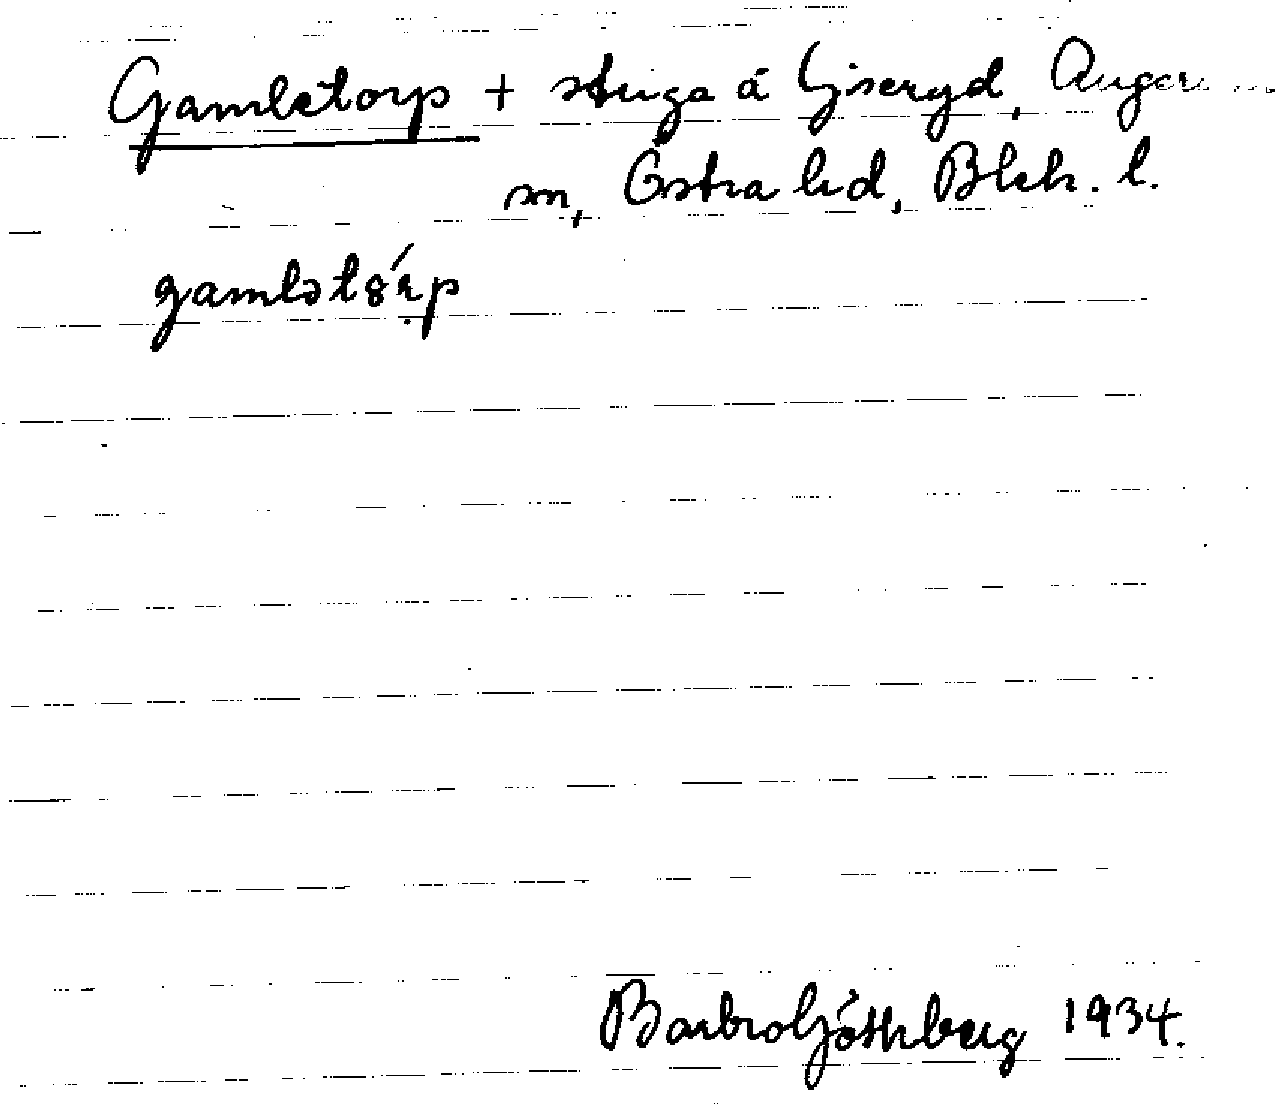 Gamletorp + stuga å Gjseryd, Auger
sn, Östra hd, Blek. l.
gamlət8́ṛp
Barbro Göthberg 1934.